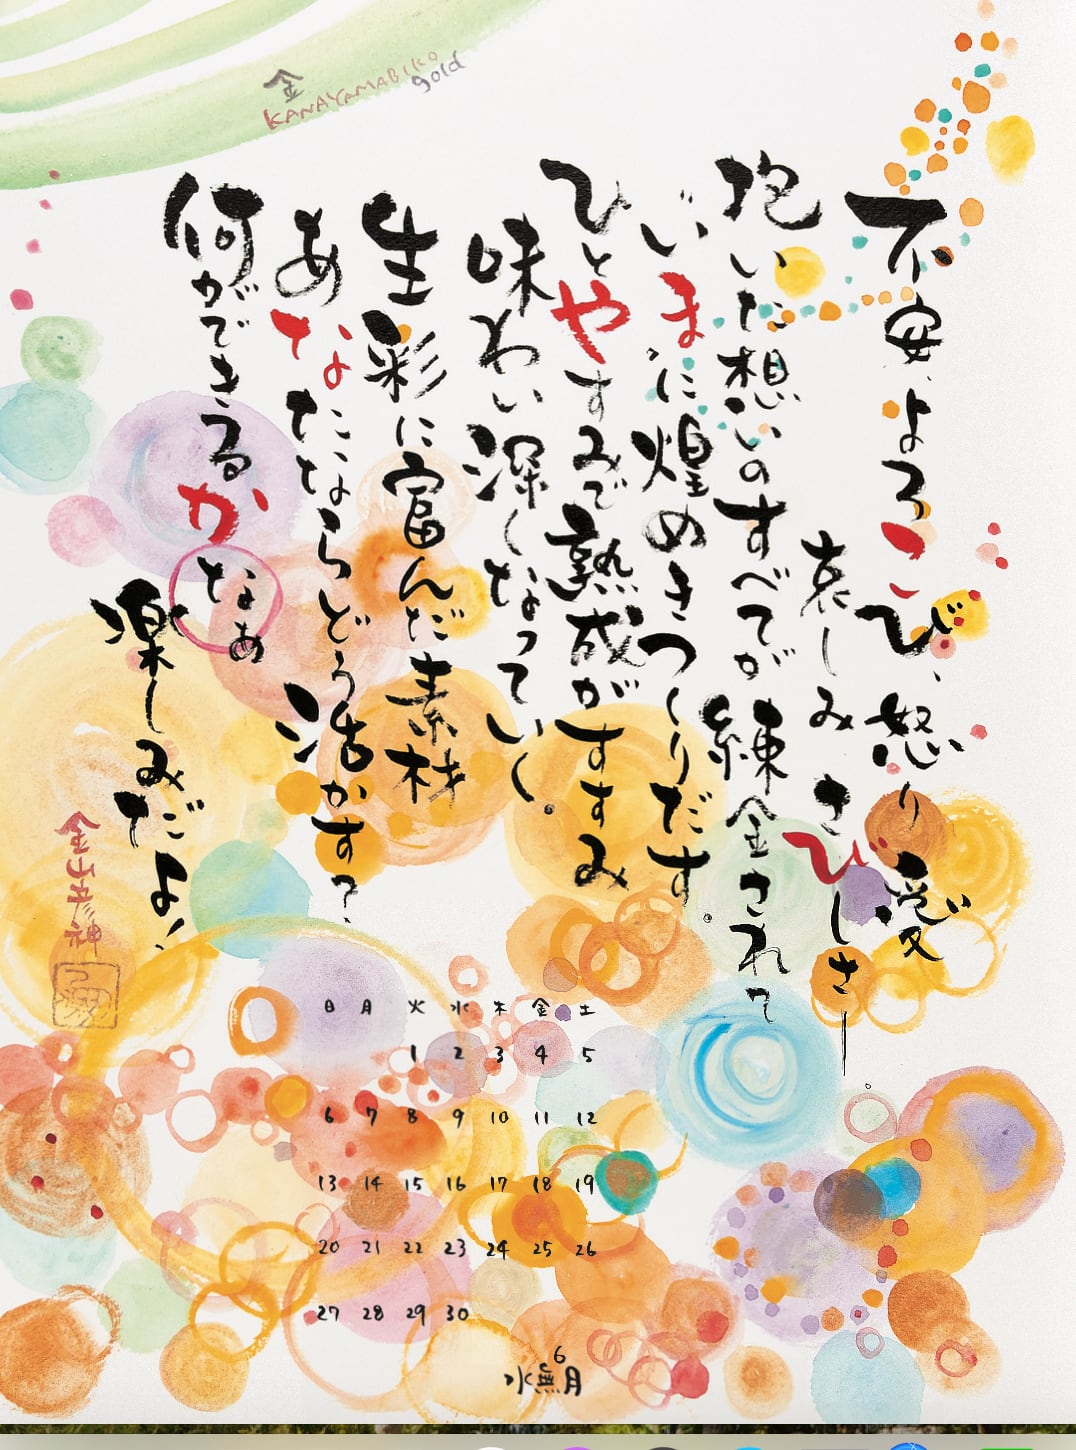 金
KANAYAMABIKO
gold
不安、よろこび、怒り 愛
哀しみ さひしさー
抱いた想いのすべてが 練金されて
いまに煌めきつくりだす。
ひとやすみで熟成がすすみ
味わい深くなっていく。
生彩に富んだ素材
あなたならどう活かす？
何ができるかなぁ
楽しみだよ！
金山彦神
日 月 火 水 木 金 土
1 2 3 4 5
6 7 8 9 10 11 12
13 14 15 16 17 18 19
20 21 22 23 24 25 26
27 28 29 30
6
水無月